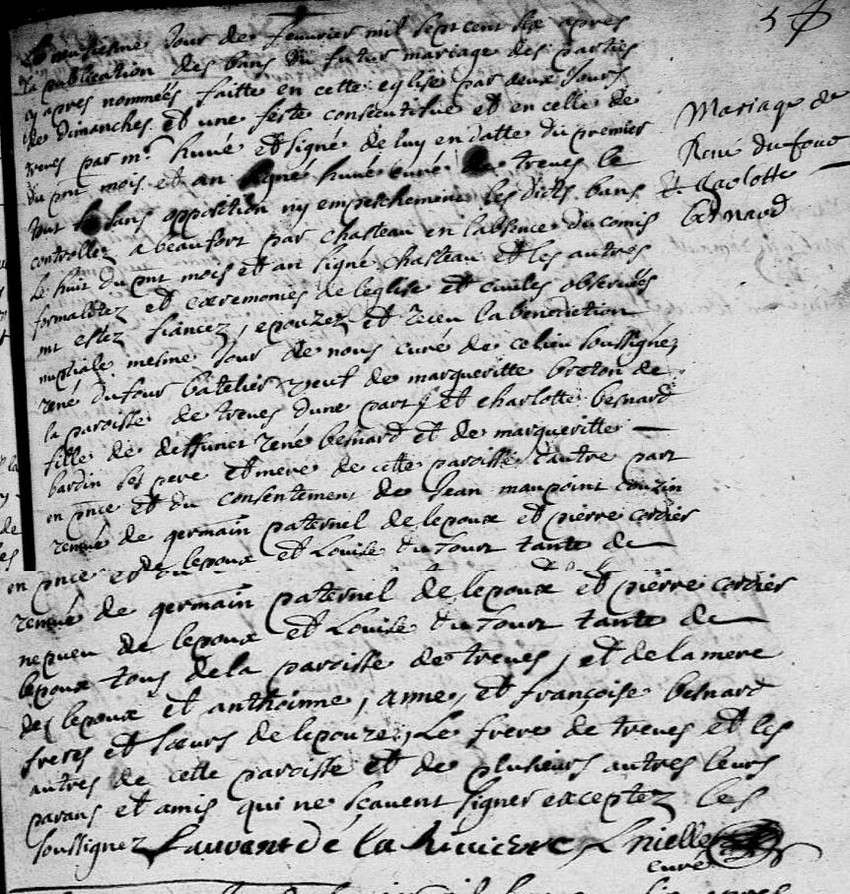 jour de fevurier mil sept cent six apres
la publication des bans du futur mariage des parties
cy apres nommées faitte en cette eglise par deux Jours
de Dimanches et une feste consecutifue et en celle de
treves par mr. huvé et signé de luy en datte du premier
du pnt mois et an signé huvé curé de treves le
tout sans opposition ny empeschement les dicts bans
controllez a beaufort par chasteau en labsence du comis
le huit du pnt mois et an signé chasteau et les autres
formalitez et ceremonies de leglise et civiles observées
ont estez fiancez, epouzez et receu la benediction
nuptiale mesme Jour de nous curé de ce lieu soussigné,
rené dufour batelier veuf de margueritte breton de
la paroisse de treves dune part et charlotte besnard
fille de deffunct rené besnard et de margueritte
bardin ses pere et mere de cette paroisse dautre part
en pnce et du consentement de Jean maupoint couzin
remué de germain paternel de lepoux et pierre cordier
en pnce et de lepoux et Louise du Tour tante de
remué de germain paternel de lepoux et pierre cordier
nepueu de lepoux et Louise du Tour tante de
lepoux tous de la paroisse de treves, et de la mere
de lepoux et anthoinne, anne, et françoise besnard
freres et sœurs de lepouze, Le frere de treves et les
autres de cette paroisse et de plusieurs autres leurs
parans et amis qui ne scavent signer exceptez les
soussignez Lauvant dé la Riuiere
curé
Mariage de
René dufour
et Charlotte
besnard